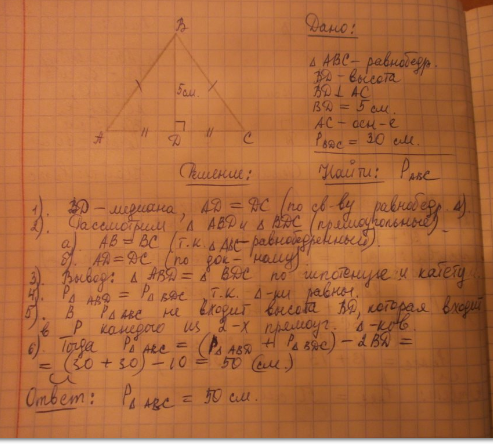 B
Дано:
Δ ABC - равнобедр.
BD - высота
BD ⊥ AC
BD = 5 см.
AC - осн-е
P BDC = 30 см.
5 см.
A D C
Решение:
Найти: P ABC
1). BD - медиана, AD = DC (по св-ву равнобедр. Δ).
2). Рассмотрим Δ ABD и Δ BDC (прямоугольные).
а). AB = BC (т.к. Δ ABC - равнобедренный).
б). AD = DC (по док-ному)
3). Вывод: Δ ABD = Δ BDC по гипотенузе и катету.
4). P Δ ABD = P Δ BDC т.к. Δ-ки равны.
5). В P Δ ABC не входит высота BD, которая входит
в P каждого из 2-х прямоуг. Δ-ков.
6). Тогда P Δ ABC = (P Δ ABD + P Δ BDC) - 2BD =
= (30 + 30) - 10 = 50 (см.)
Ответ: P Δ ABC = 50 см.